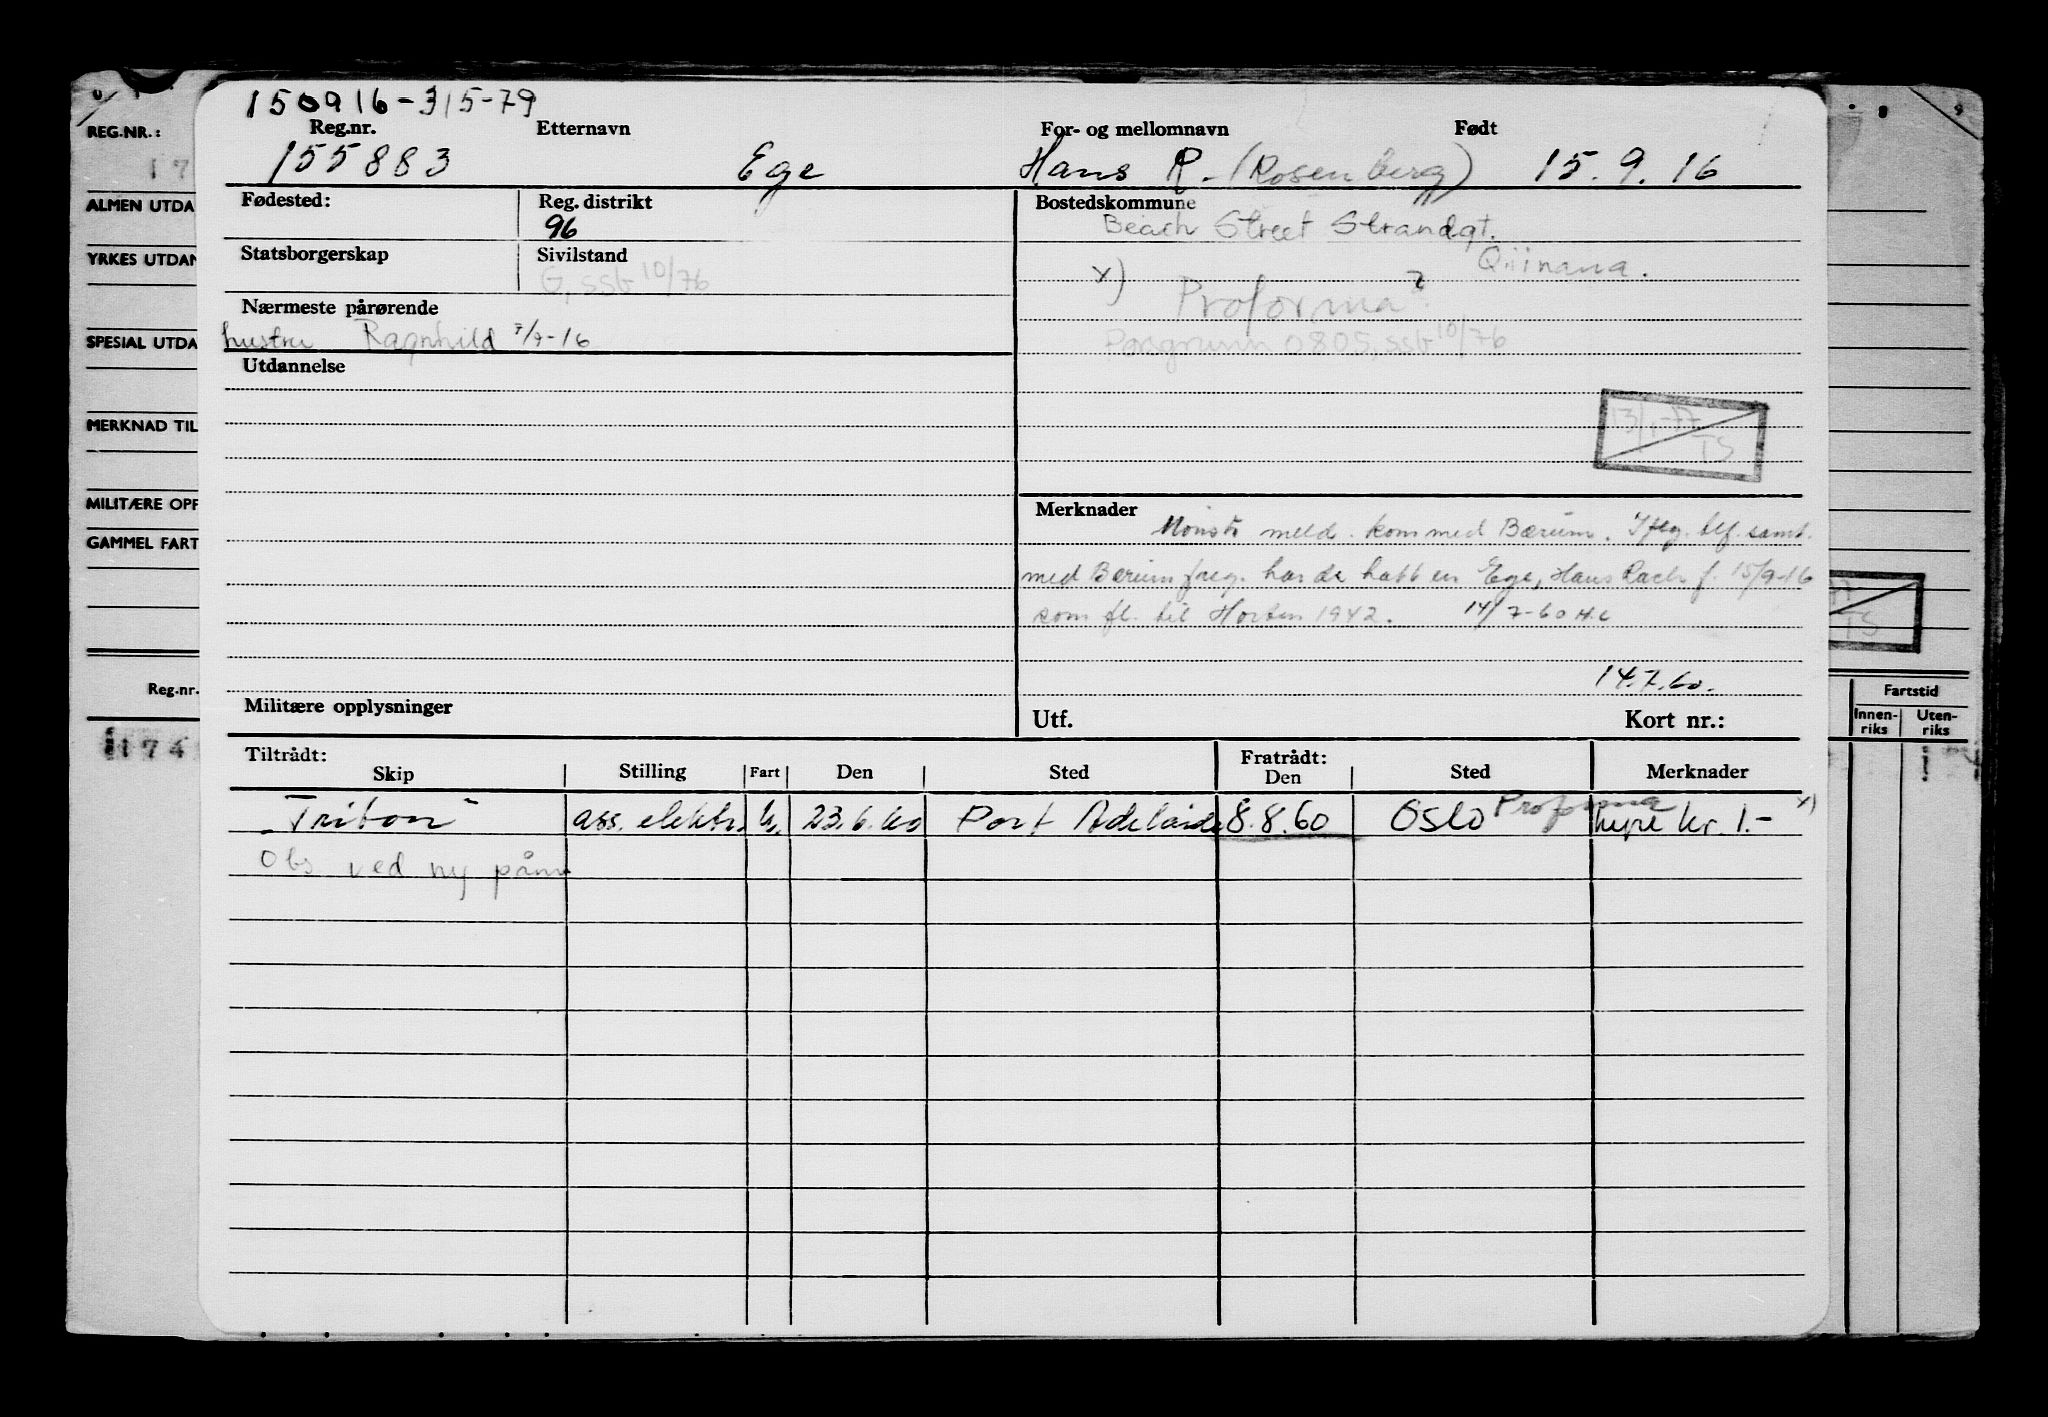 150916-31579
REG.NR.:
Reg.nr. Etternavn For- og mellomnavn Født
155883 Ege Hans R. (Rosenberg) 15.9.16
ALMEN UTDA
Fødested: Reg. distrikt Bostedskommune
96 Beach Street Strandgt.
YRKES UTDAN
Statsborgerskap Sivilstand
G, ssb 10/76 x) Proforma?
Nærmeste pårørende
hustru Ragnhild Porsgrunn 0805, ssb 10/76
SPESIAL UTDA
Utdannelse
13/1-77
TS
MERKNAD TIL
MILITÆRE OPP
Merknader
Mønstr. meld. kom med Bærum. Iflg. tlf. samt.
GAMMEL FART
med Bærum freg. har de hatt en Ege, Hans Rach f. 15/9-16
som fl. til Horten 1942. 14/7-60 H.C
14.7.60.
Reg.nr.
Militære opplysninger Utf. Kort nr.:
Fartstid
Innen-riks Uten-riks
174
Tiltrådt: Fratrådt:
Skip Stilling Fart Den Sted Den Sted Merknader
"Triton" ass. elektr. U. 23.6.60 Port Adelaide 8.8.60 Oslo Proforma hyre kr. 1.- x)
Obs ved ny påm